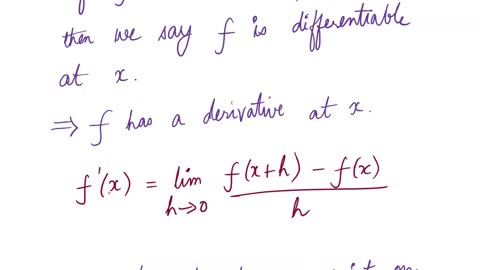 then we say f is differentiable
at x.
⇒ f has a derivative at x.
f'(x) = lim h→0 f(x+h) - f(x) / h